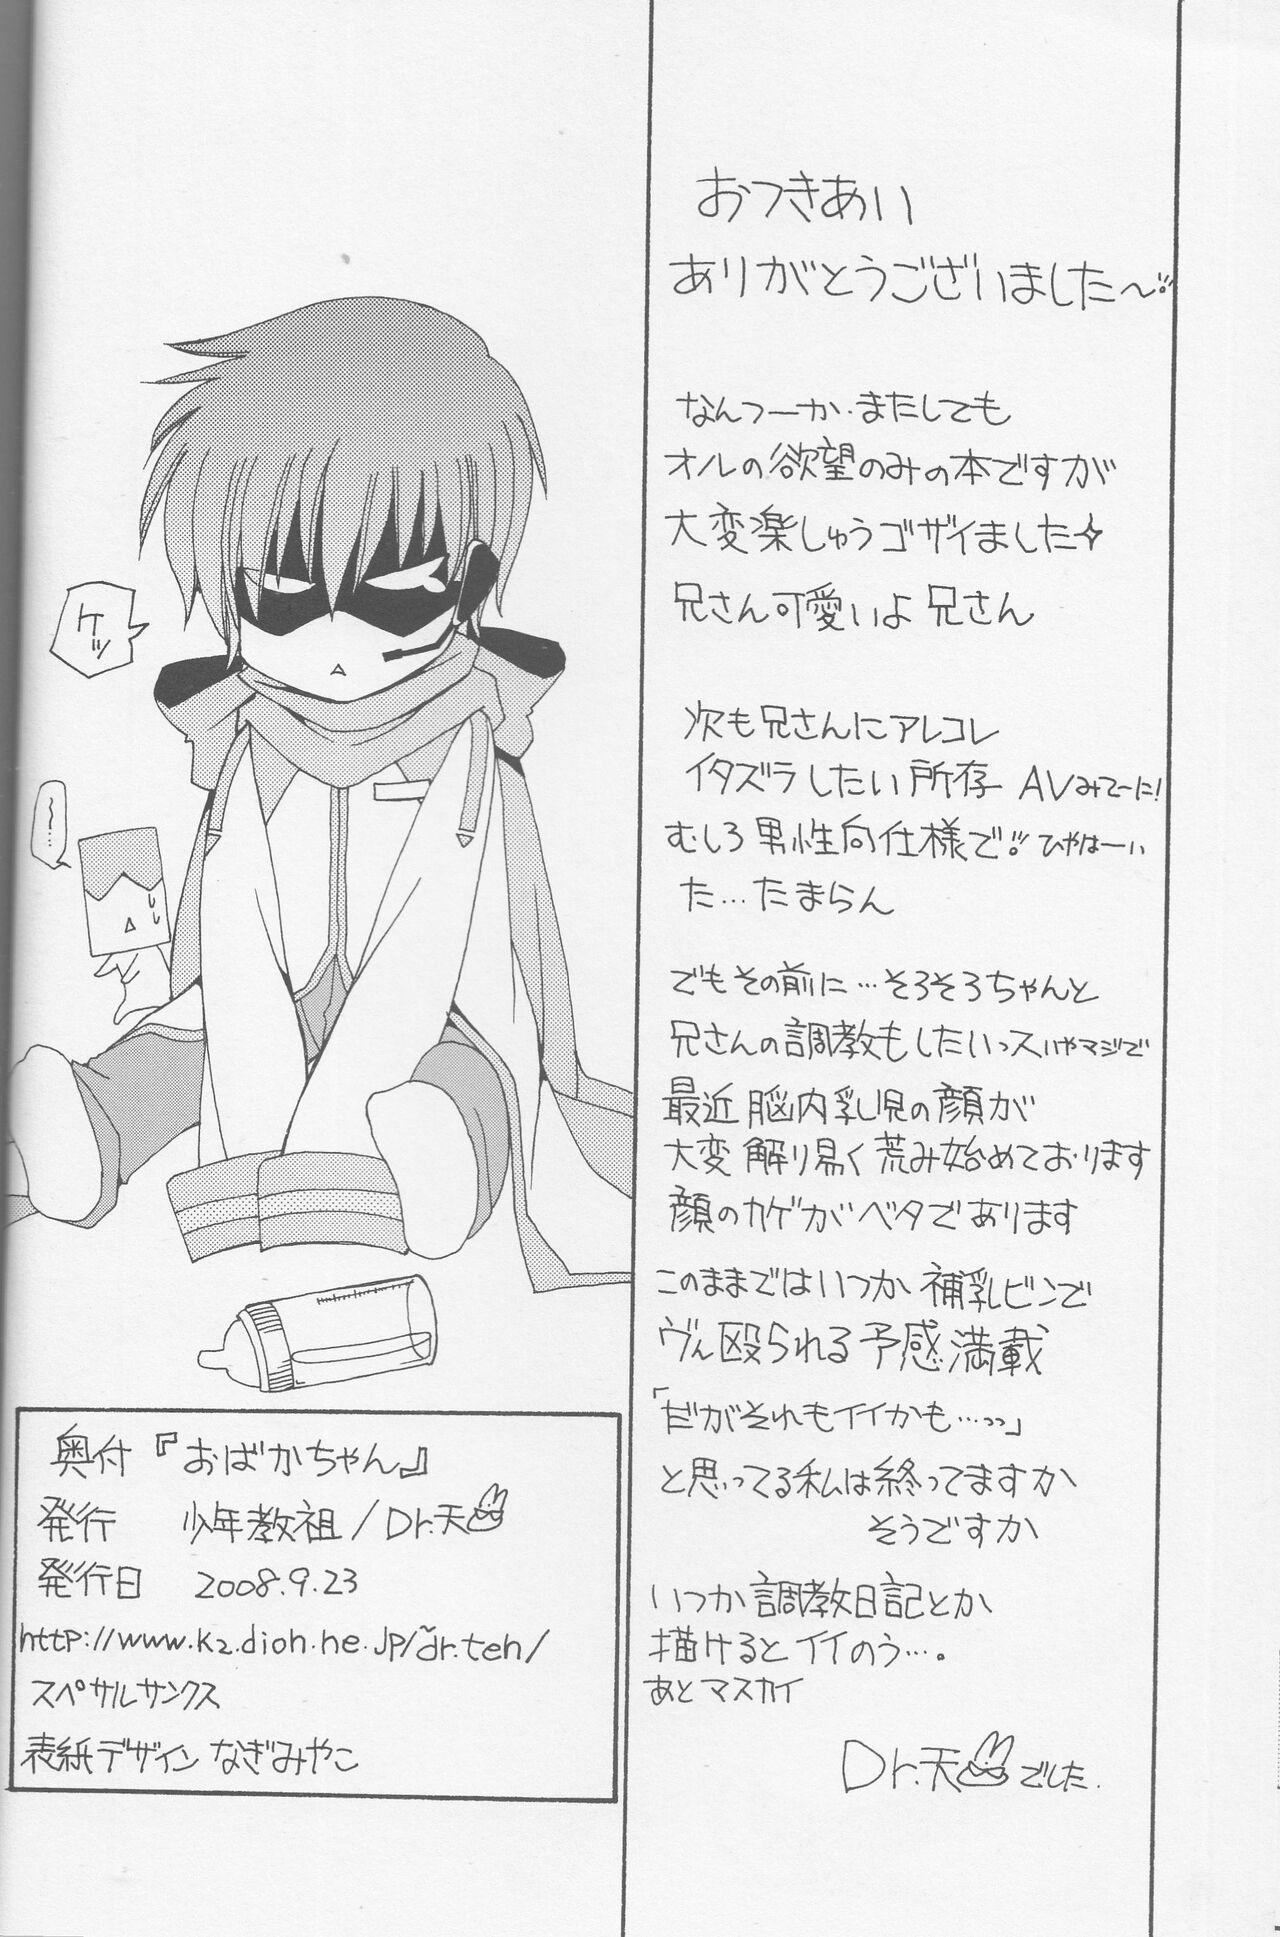 おつきあい
ありがとうございましたー
なんつーか・またしても
オルの欲望のみの本ですが
大変楽しゅうゴザイました
兄さん可愛いよ兄さん
次も兄さんにアレコレ
イタズラしたい所存 AVみてーに!
むしろ男性向仕様で ひゃはーい
た…たまらん
でもその前に…そろそろちゃんと
兄さんの調教もしたいっス いやマジで
最近脳内乳児の顔が
大変解り易く荒み始めております
顔のカゲがベタであります
このままではいつか補乳ビンで
ヴん殴られる予感満載
「だがそれもイイかも…っっ」
と思ってる私は終ってますか
そうですか
いつか調教日記とか
描けるとイイのう…。
あとマスカイ
Dr.天 でした.
ケッ
奥付『おばかちゃん』
発行 少年教祖/Dr.天
発行日 2008.9.23
http://www.k2.dion.ne.jp/~dr.ten/
スペサルサンクス
表紙デザイン なぎみやこ